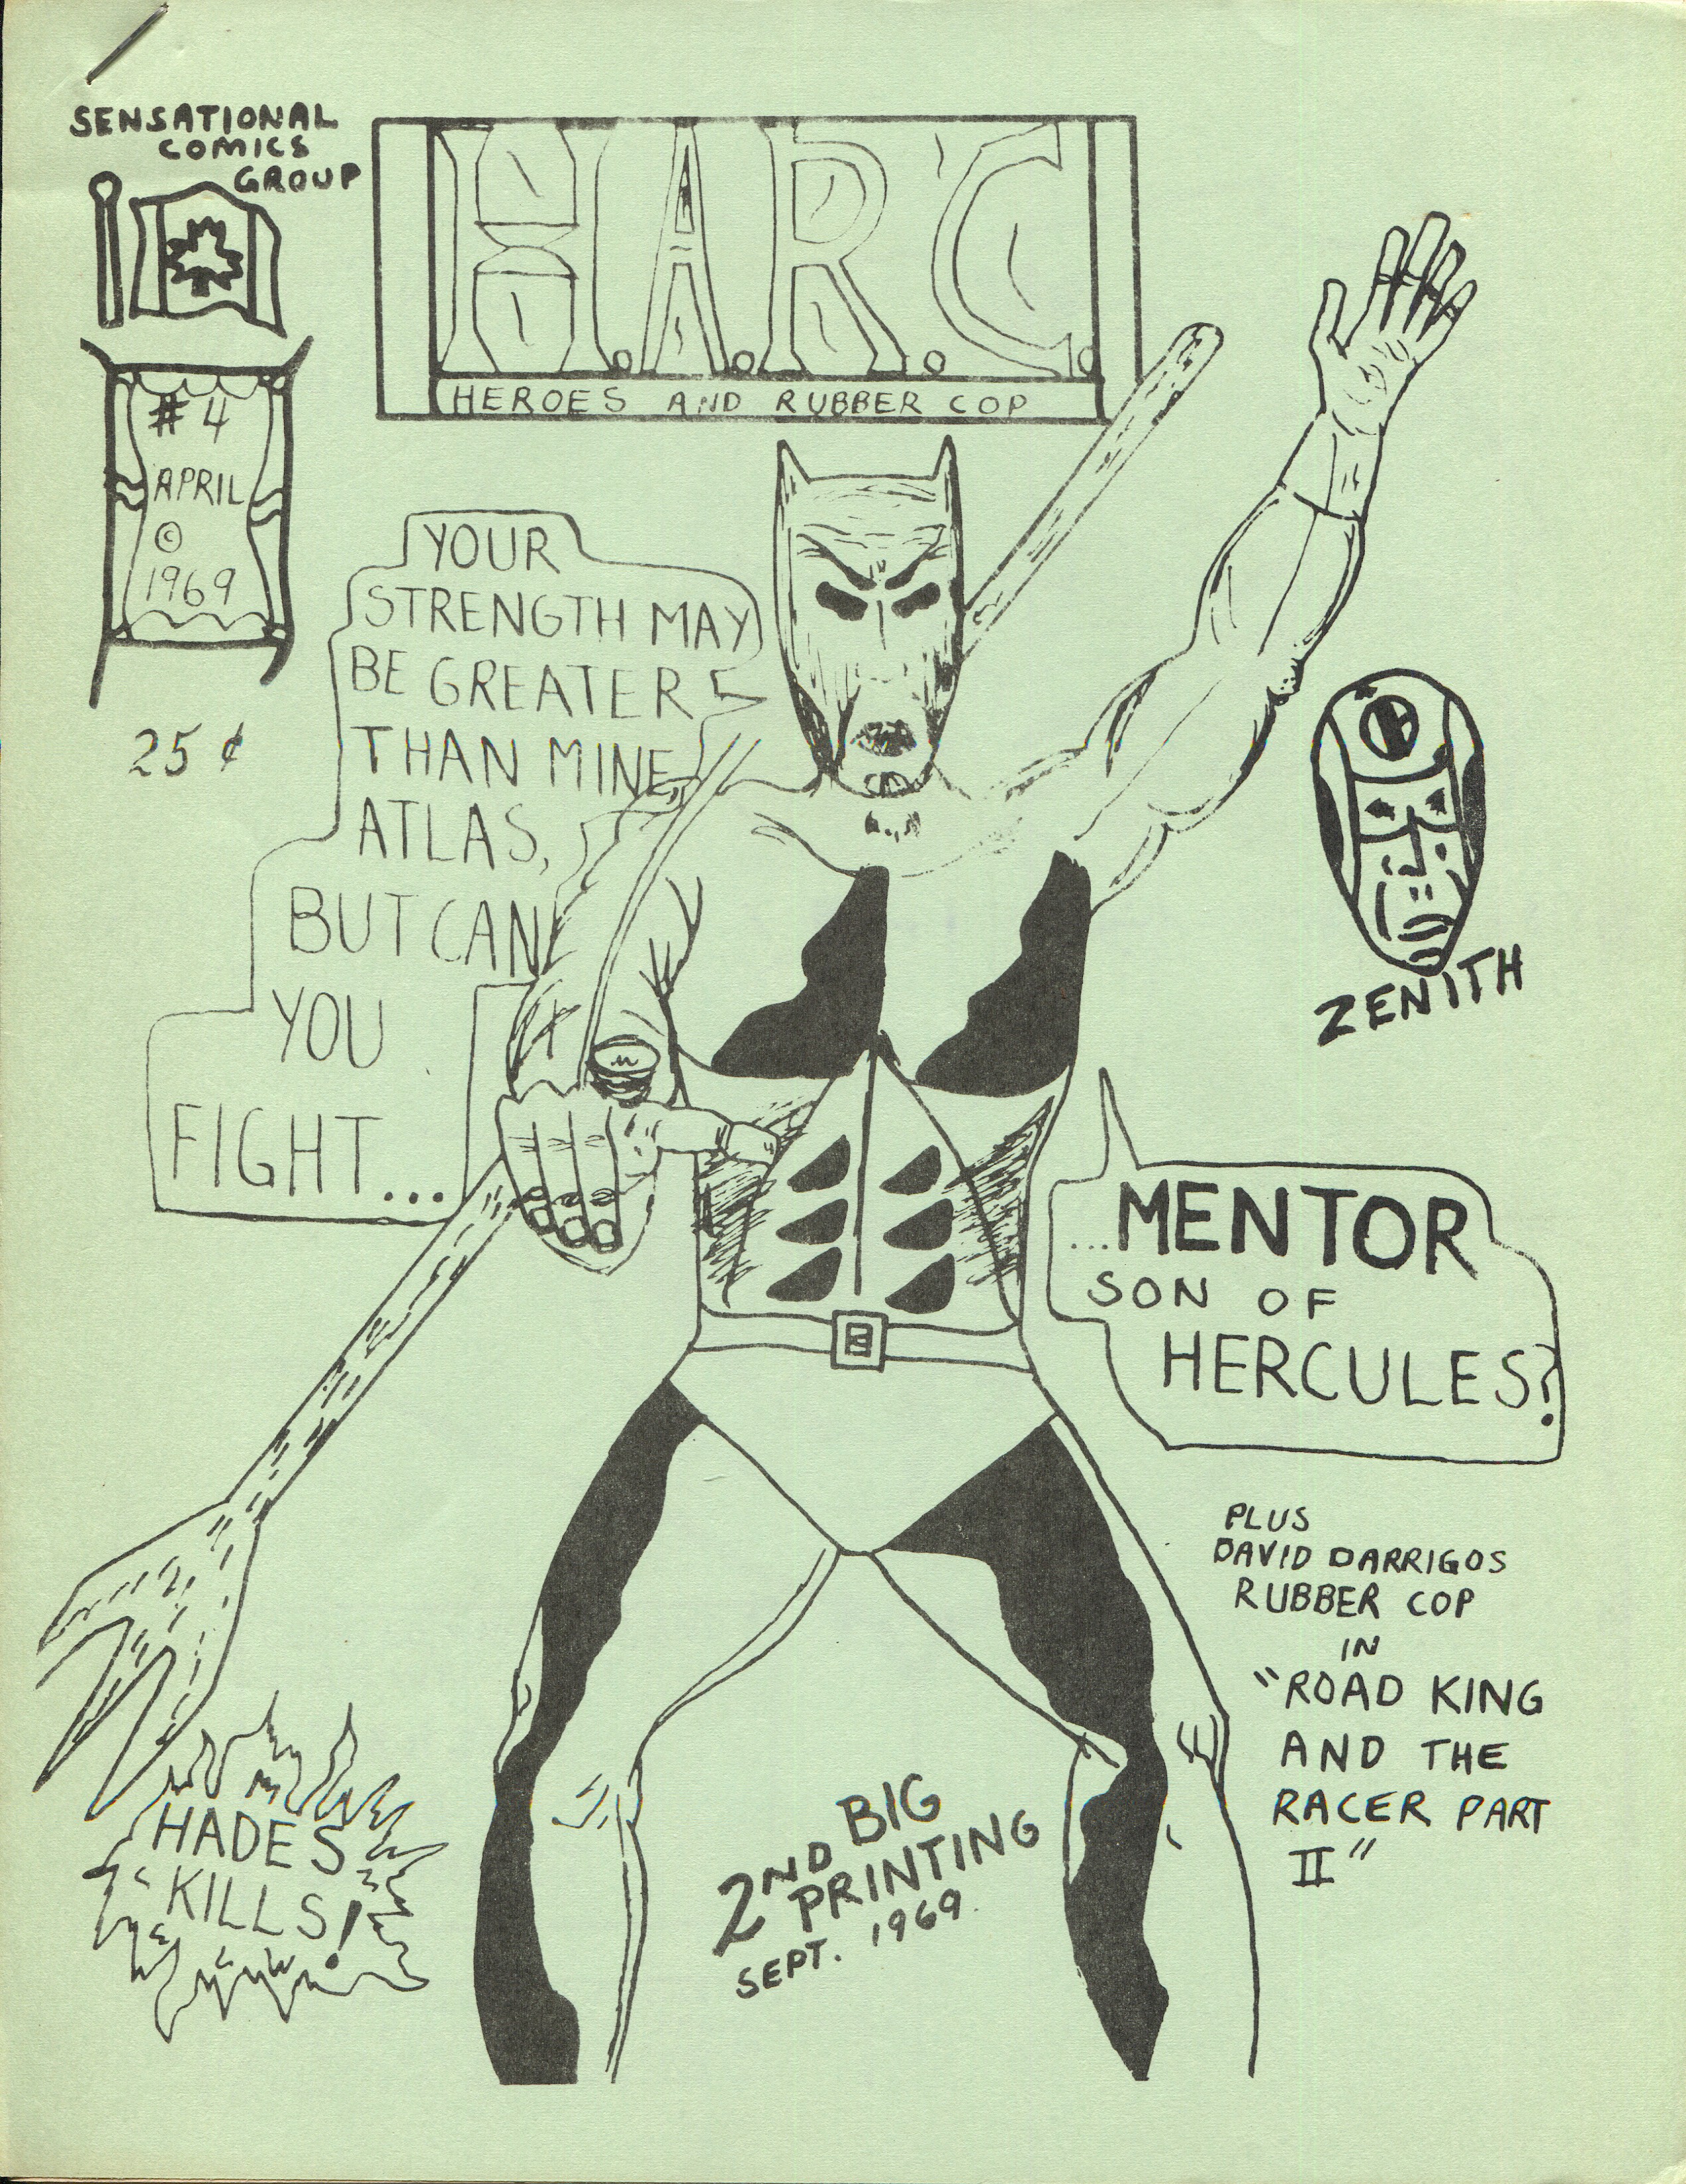 SENSATIONAL
COMICS
GROUP
H.A.R.C.
HEROES AND RUBBER COP
#4
APRIL
©
1969
25¢
YOUR
STRENGTH MAY
BE GREATER
THAN MINE
ATLAS,
BUT CAN
YOU
FIGHT...
ZENITH
...MENTOR
SON OF
HERCULES?
PLUS
DAVID DARRIGOS
RUBBER COP
IN
"ROAD KING
AND THE
RACER PART
II"
HADES
KILLS!
2ND BIG
PRINTING
SEPT. 1969.